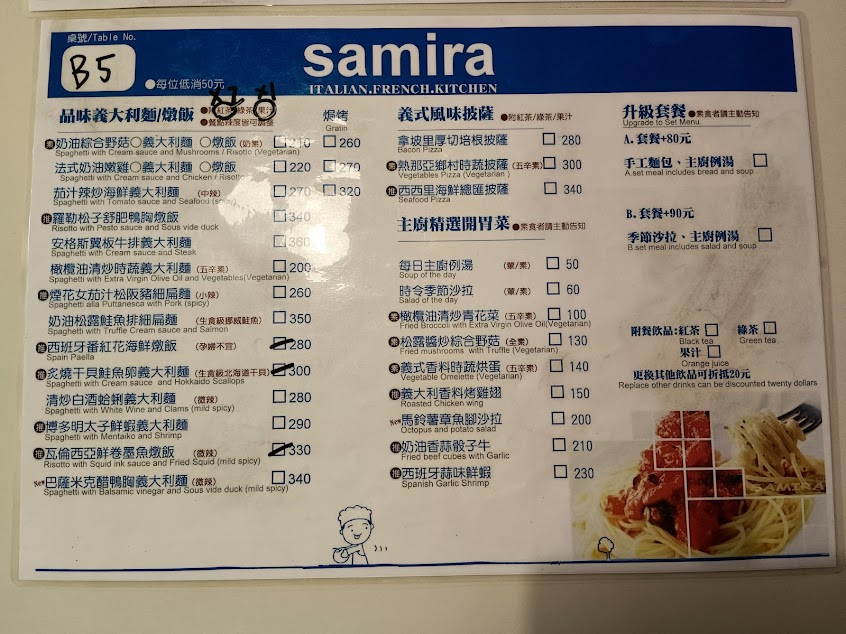 桌號/Table No.
B5
●每位低消50元
samira
ITALIAN.FRENCH.KITCHEN
品味義大利麵/燉飯
●附紅茶/綠茶/果汁
●餐點辣度皆可調整
焗烤
Gratin
素 奶油綜合野菇○義大利麵 ○燉飯(奶素) 210 260
Spaghetti with Cream sauce and Mushrooms / Risotto (Vegetarian)
法式奶油嫩雞○義大利麵 ○燉飯 220 270
Spaghetti with Cream sauce and Chicken / Risotto
茄汁辣炒海鮮義大利麵 (中辣) 270 320
Spaghetti with Tomato sauce and Seafood (spicy)
推 羅勒松子舒肥鴨胸燉飯 340
Risotto with Pesto sauce and Sous vide duck
安格斯翼板牛排義大利麵 360
Spaghetti with Cream sauce and Steak
橄欖油清炒時蔬義大利麵 (五辛素) 200
Spaghetti with Extra Virgin Olive Oil and Vegetables(Vegetarian)
推 煙花女茄汁松阪豬細扁麵 (小辣) 260
Spaghetti alla Puttanesca with Pork (spicy)
奶油松露鮭魚排細扁麵 (生食級挪威鮭魚) 350
Spaghetti with Truffle Cream sauce and Salmon
推 西班牙番紅花海鮮燉飯 (孕婦不宜) 280
Spain Paella
推 炙燒干貝鮭魚卵義大利麵 (生食級北海道干貝) 300
Spaghetti with Cream sauce and Hokkaido Scallops
清炒白酒蛤蜊義大利麵 (微辣) 280
Spaghetti with White Wine and Clams (mild spicy)
推 博多明太子鮮蝦義大利麵 290
Spaghetti with Mentaiko and Shrimp
推 瓦倫西亞鮮卷墨魚燉飯 (微辣) 330
Risotto with Squid ink sauce and Fried Squid (mild spicy)
New 巴薩米克醋鴨胸義大利麵 (微辣) 340
Spaghetti with Balsamic vinegar and Sous vide duck (mild spicy)
義式風味披薩 ●附紅茶/綠茶/果汁
拿坡里厚切培根披薩 280
Bacon Pizza
素 熱那亞鄉村時蔬披薩 (五辛素) 300
Vegetables Pizza (Vegetarian)
推 西西里海鮮總匯披薩 340
Seafood Pizza
主廚精選開胃菜 ●素食者請主動告知
每日主廚例湯 (葷/素) 50
Soup of the day
時令季節沙拉 (葷/素) 60
Salad of the day
素 橄欖油清炒青花菜 (五辛素) 100
Fried Broccoli with Extra Virgin Olive Oil(Vegetarian)
素 松露醬炒綜合野菇 (全素) 130
Fried mushrooms with Truffle (Vegetarian)
素 義式香料時蔬烘蛋 (五辛素) 140
Vegetable Omelette (Vegetarian)
推 義大利香料烤雞翅 150
Roasted Chicken wing
New 馬鈴薯章魚腳沙拉 200
Octopus and potato salad
推 奶油香蒜骰子牛 210
Fried beef cubes with Garlic
推 西班牙蒜味鮮蝦 230
Spanish Garlic Shrimp
升級套餐 ●素食者請主動告知
Upgrade to Set Menu.
A. 套餐+80元
手工麵包、主廚例湯
A.set meal includes bread and soup
B. 套餐+90元
季節沙拉、主廚例湯
B.set meal includes salad and soup
附餐飲品:紅茶 綠茶
Black tea Green tea
果汁
Orange juice
更換其他飲品可折抵20元
Replace other drinks can be discounted twenty dollars